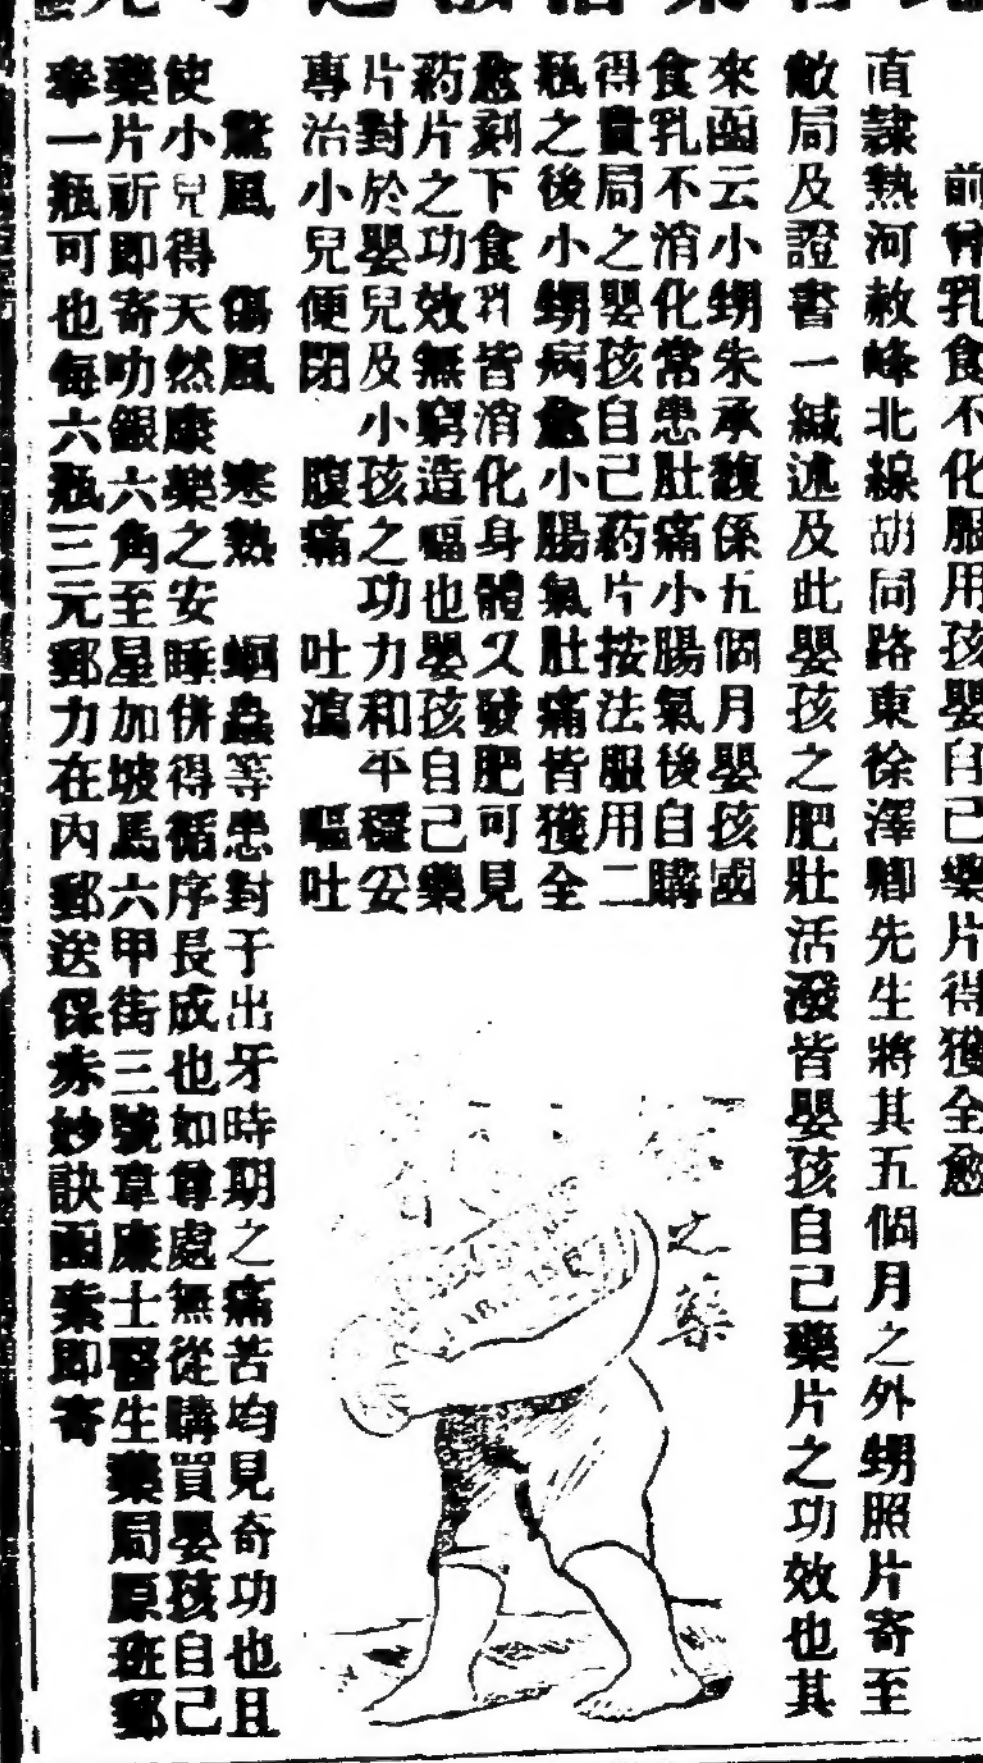 前曾乳食不化服用孩嬰自己藥片得獲全愈
直隸熱河赦峰北線胡同路東徐澤卿先生將其五個月之外甥照片寄至
敝局及證書一緘述及此嬰孩之肥壯活潑皆嬰孩自己藥片之功效也其
來函云小甥朱承馥係五個月嬰孩國
食乳不消化常患肚痛小腸氣後自購
得貴局之嬰孩自己葯片按法服用二
瓶之後小甥病愈小腸氣肚痛皆獲全
愈刻下食乳皆消化身體又發肥可見
葯片之功效無窮造福也嬰孩自己藥
片對於嬰兒及小孩之功力和平穩妥
專治小兒便閉 腹痛 吐瀉 嘔吐
驚風 傷風 寒熱 蛔蟲等患對于出牙時期之痛苦均見奇功也且
使小兒得天然康樂之安睡併得循序長成也如尊處無從購買嬰孩自己
藥片祈即寄叻銀六角至星加坡馬六甲街三號韋廉士醫生藥局原班郵
奉一瓶可也每六瓶三元郵力在內郵送保赤妙訣函索即寄
之藥